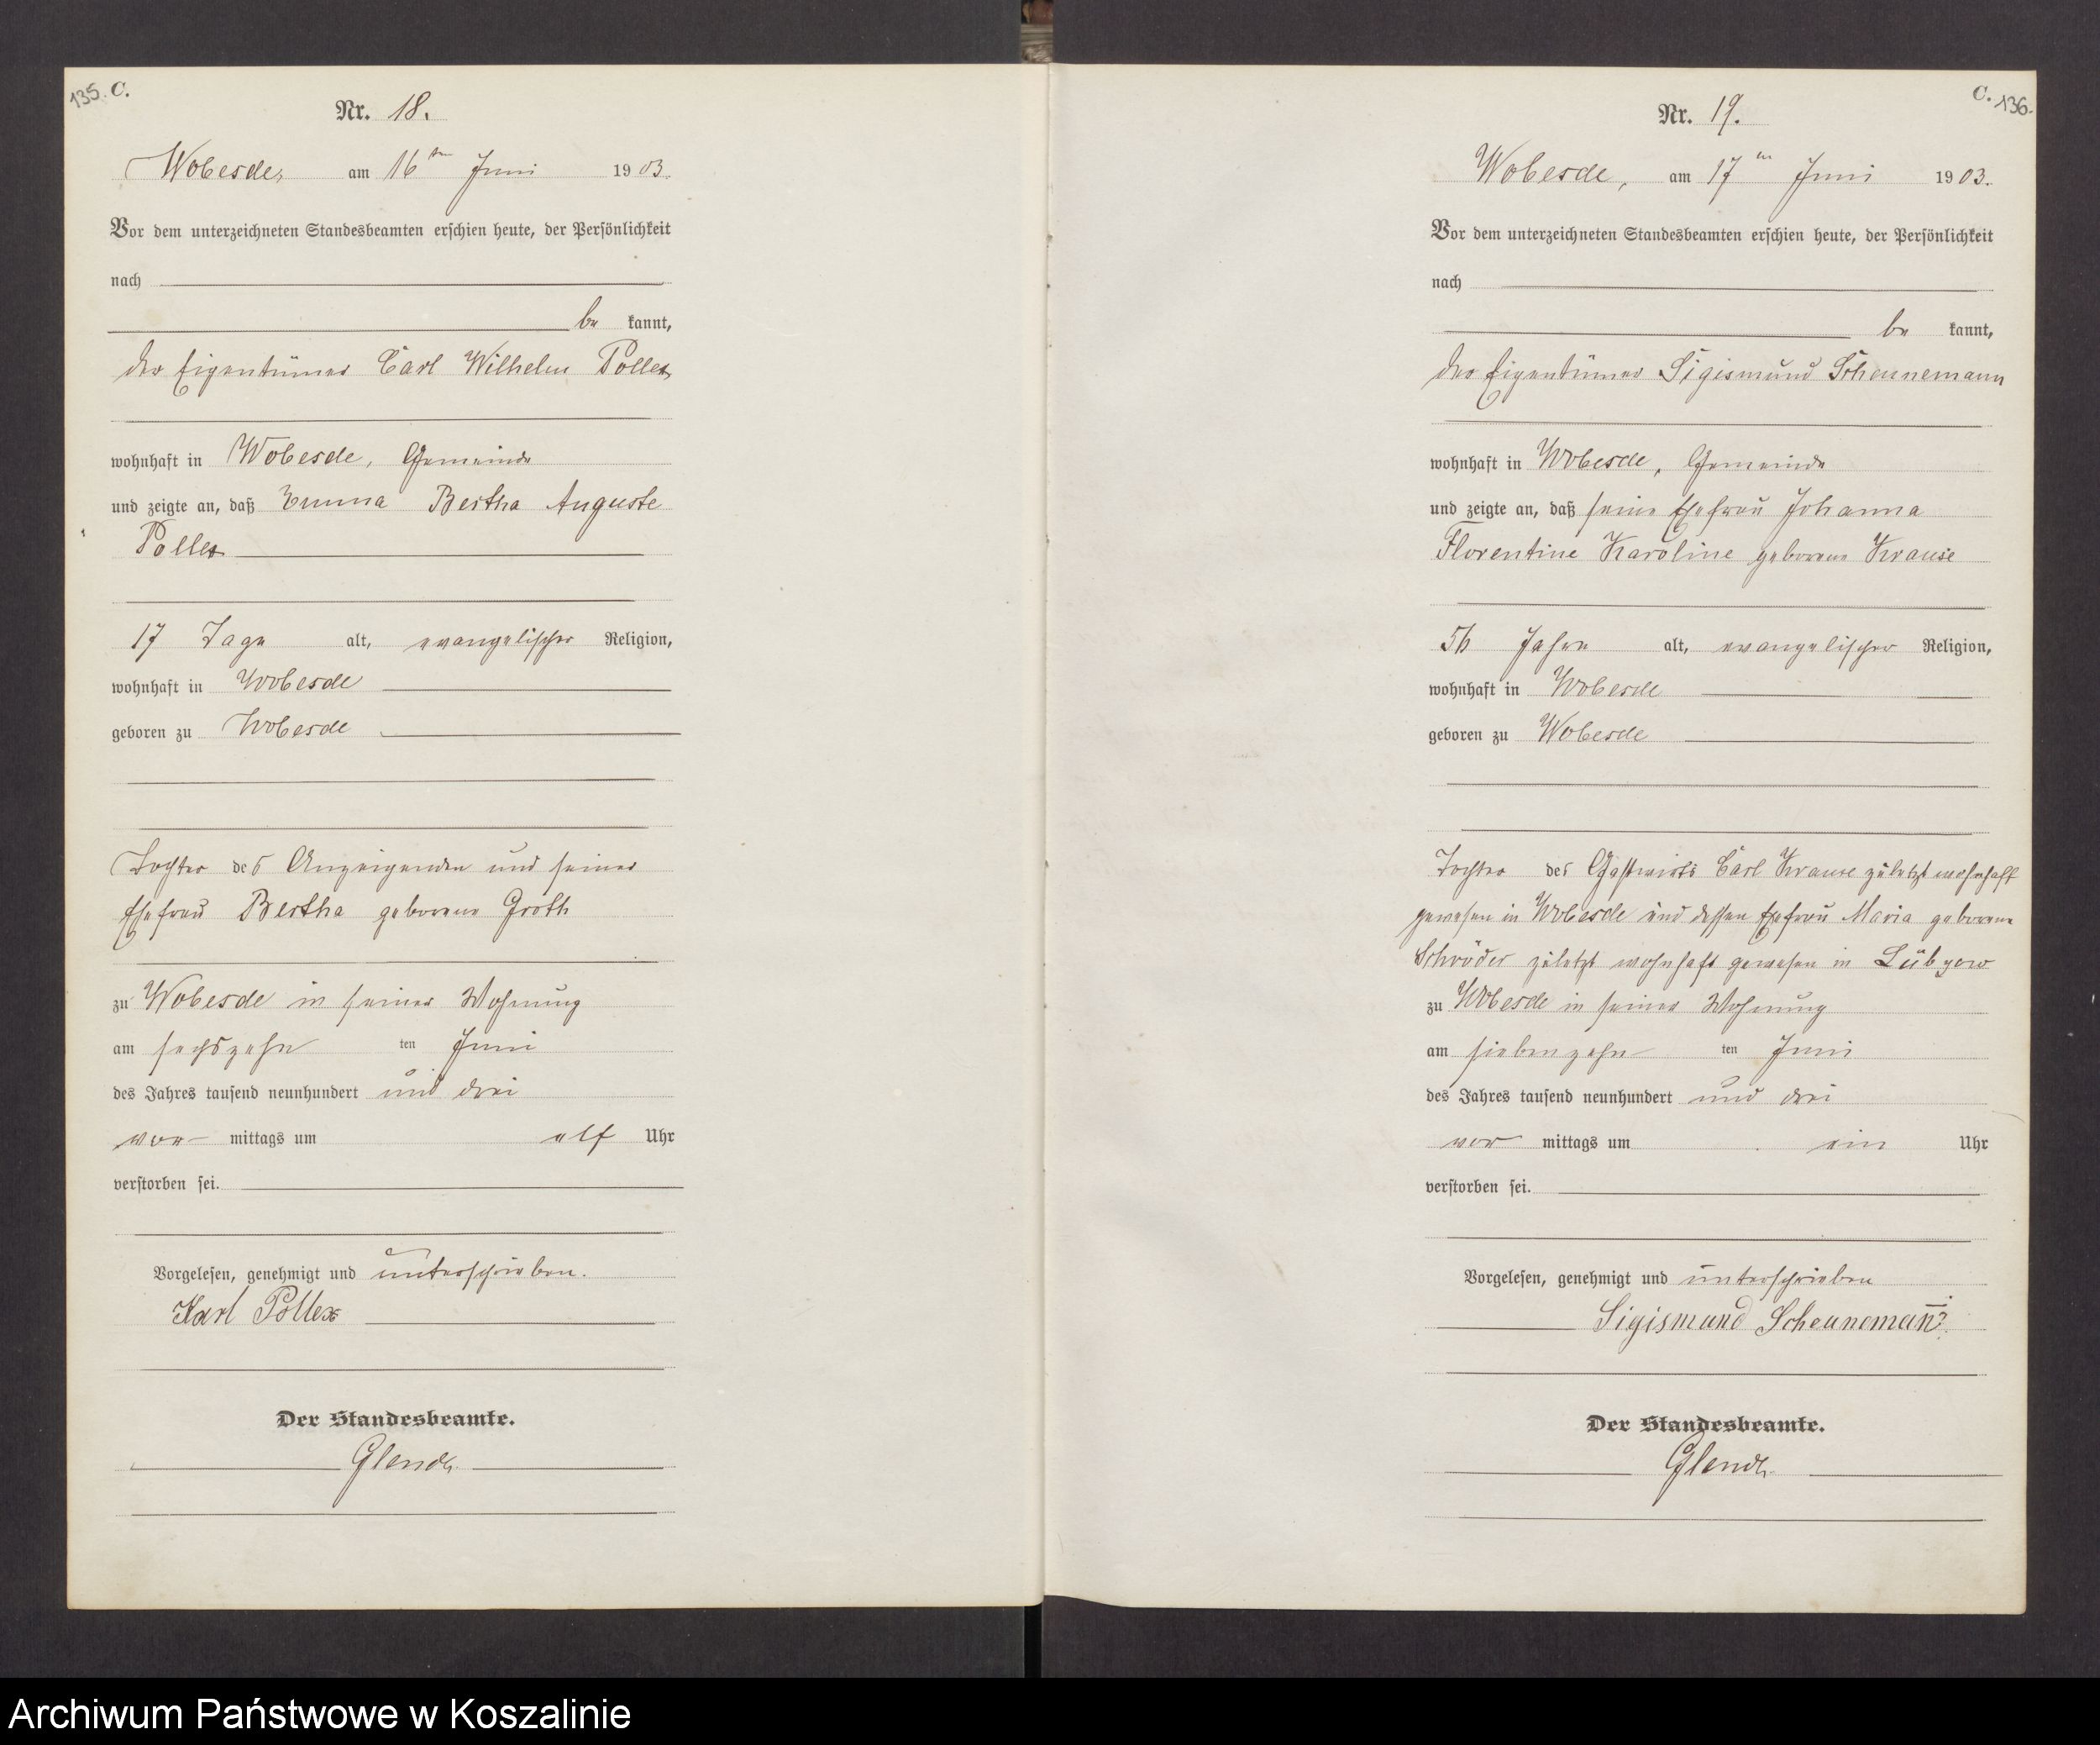 135. C.
Nr. 18.
Wobesde, am 16ten Juni 1903.
Vor dem unterzeichneten Standesbeamten erschien heute, der Persönlichkeit
nach
be kannt,
der Eigentümer Carl Wilhelm Pollex
wohnhaft in Wobesde, Gemeinde
und zeigte an, daß Emma Bertha Auguste
Pollex
17 Tage alt, evangelischer Religion,
wohnhaft in Wobesde
geboren zu Wobesde
Tochter des Anzeigenden und seiner
Ehefrau Bertha geborene Groth
zu Wobesde in seiner Wohnung
am sechszehn ten Juni
des Jahres tausend neunhundert und drei
vor mittags um elf Uhr
verstorben sei.
Vorgelesen, genehmigt und unterschrieben.
Karl Pollex
Der Standesbeamte.
C. 136.
Nr. 19.
Wobesde, am 17ten Juni 1903.
Vor dem unterzeichneten Standesbeamten erschien heute, der Persönlichkeit
nach
be kannt,
der Eigentümer Sigismund Scheunemann
wohnhaft in Wobesde, Gemeinde
und zeigte an, daß seine Ehefrau Johanna
Florentine Karoline geborene Krause
56 Jahre alt, evangelischer Religion,
wohnhaft in Wobesde
geboren zu Wobesde
Tochter des Gastwirts Carl Krause zuletzt wohnhaft
gewesen in Wobesde und dessen Ehefrau Maria geborene
Schröder zuletzt wohnhaft gewesen in Lübzow
zu Wobesde in seiner Wohnung
am siebenzehn ten Juni
des Jahres tausend neunhundert und drei
vor mittags um ein Uhr
verstorben sei.
Vorgelesen, genehmigt und unterschrieben
Sigismund Scheunemañ
Der Standesbeamte.
Archiwum Państwowe w Koszalinie